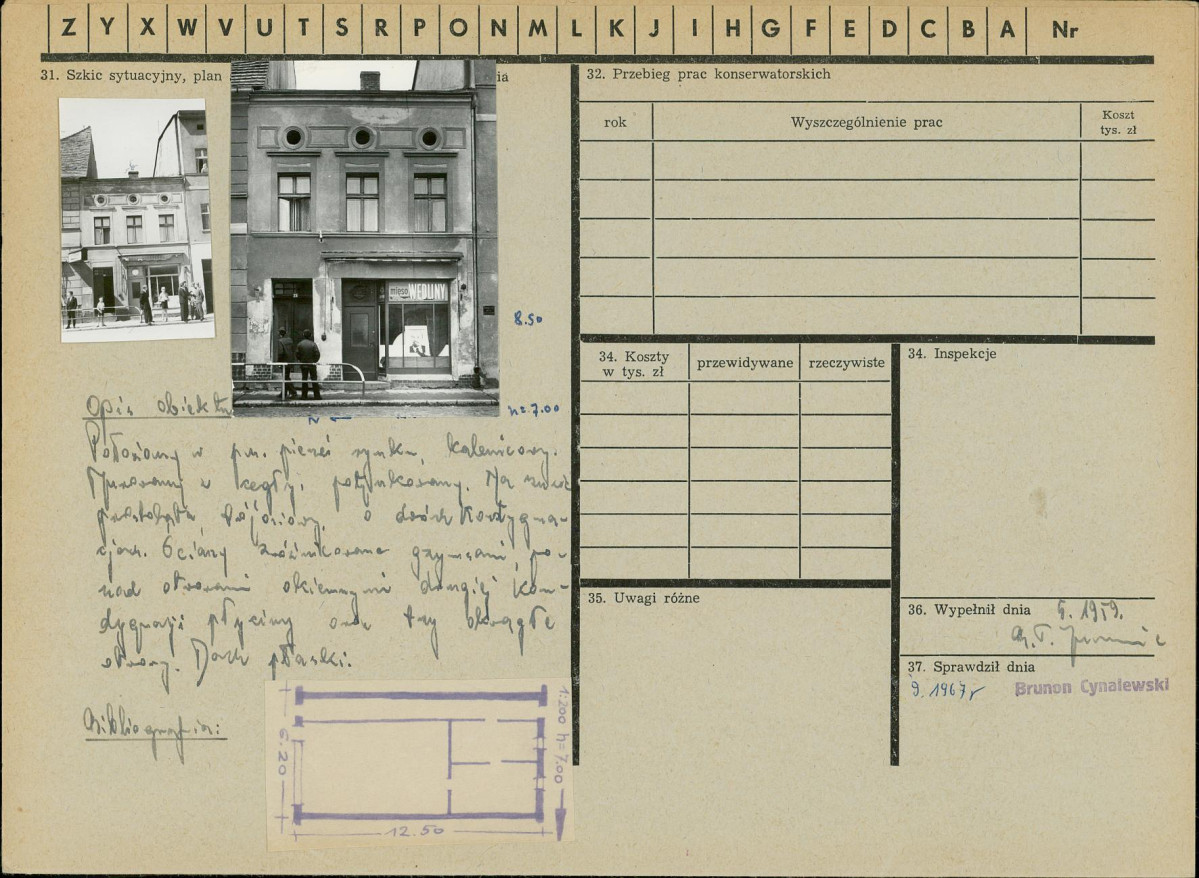 Z Y X W V U T S R P O N M L K J I H G F E D C B A Nr
31. Szkic sytuacyjny, plan
ia
mięso WĘDLINY
8.50
h=7.00
N
Opis obiektu
Położony w pn. pierzei rynku, kalenicowy.
Murowany z cegły, potynkowany. Na rzucie
prostokąta, o dwóch kondygna-
cjach. Ściany zróżnicowane gzymsami, po-
nad otworami okiennymi drugiej kon-
dygnacji płyciny oraz trzy okrągłe
otwory. Dach płaski.
Bibliografia:
6.20
12.50
1:200 h=7.00
32. Przebieg prac konserwatorskich
rok
Wyszczególnienie prac
Koszt
tys. zł
34. Koszty
w tys. zł
przewidywane
rzeczywiste
34. Inspekcje
35. Uwagi różne
36. Wypełnił dnia 5.1959.
37. Sprawdził dnia
9.1967r Brunon Cynalewski